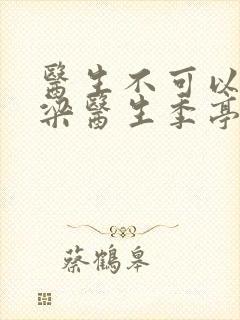 醫生不可以
梁醫生季亭
蔡鶴皋